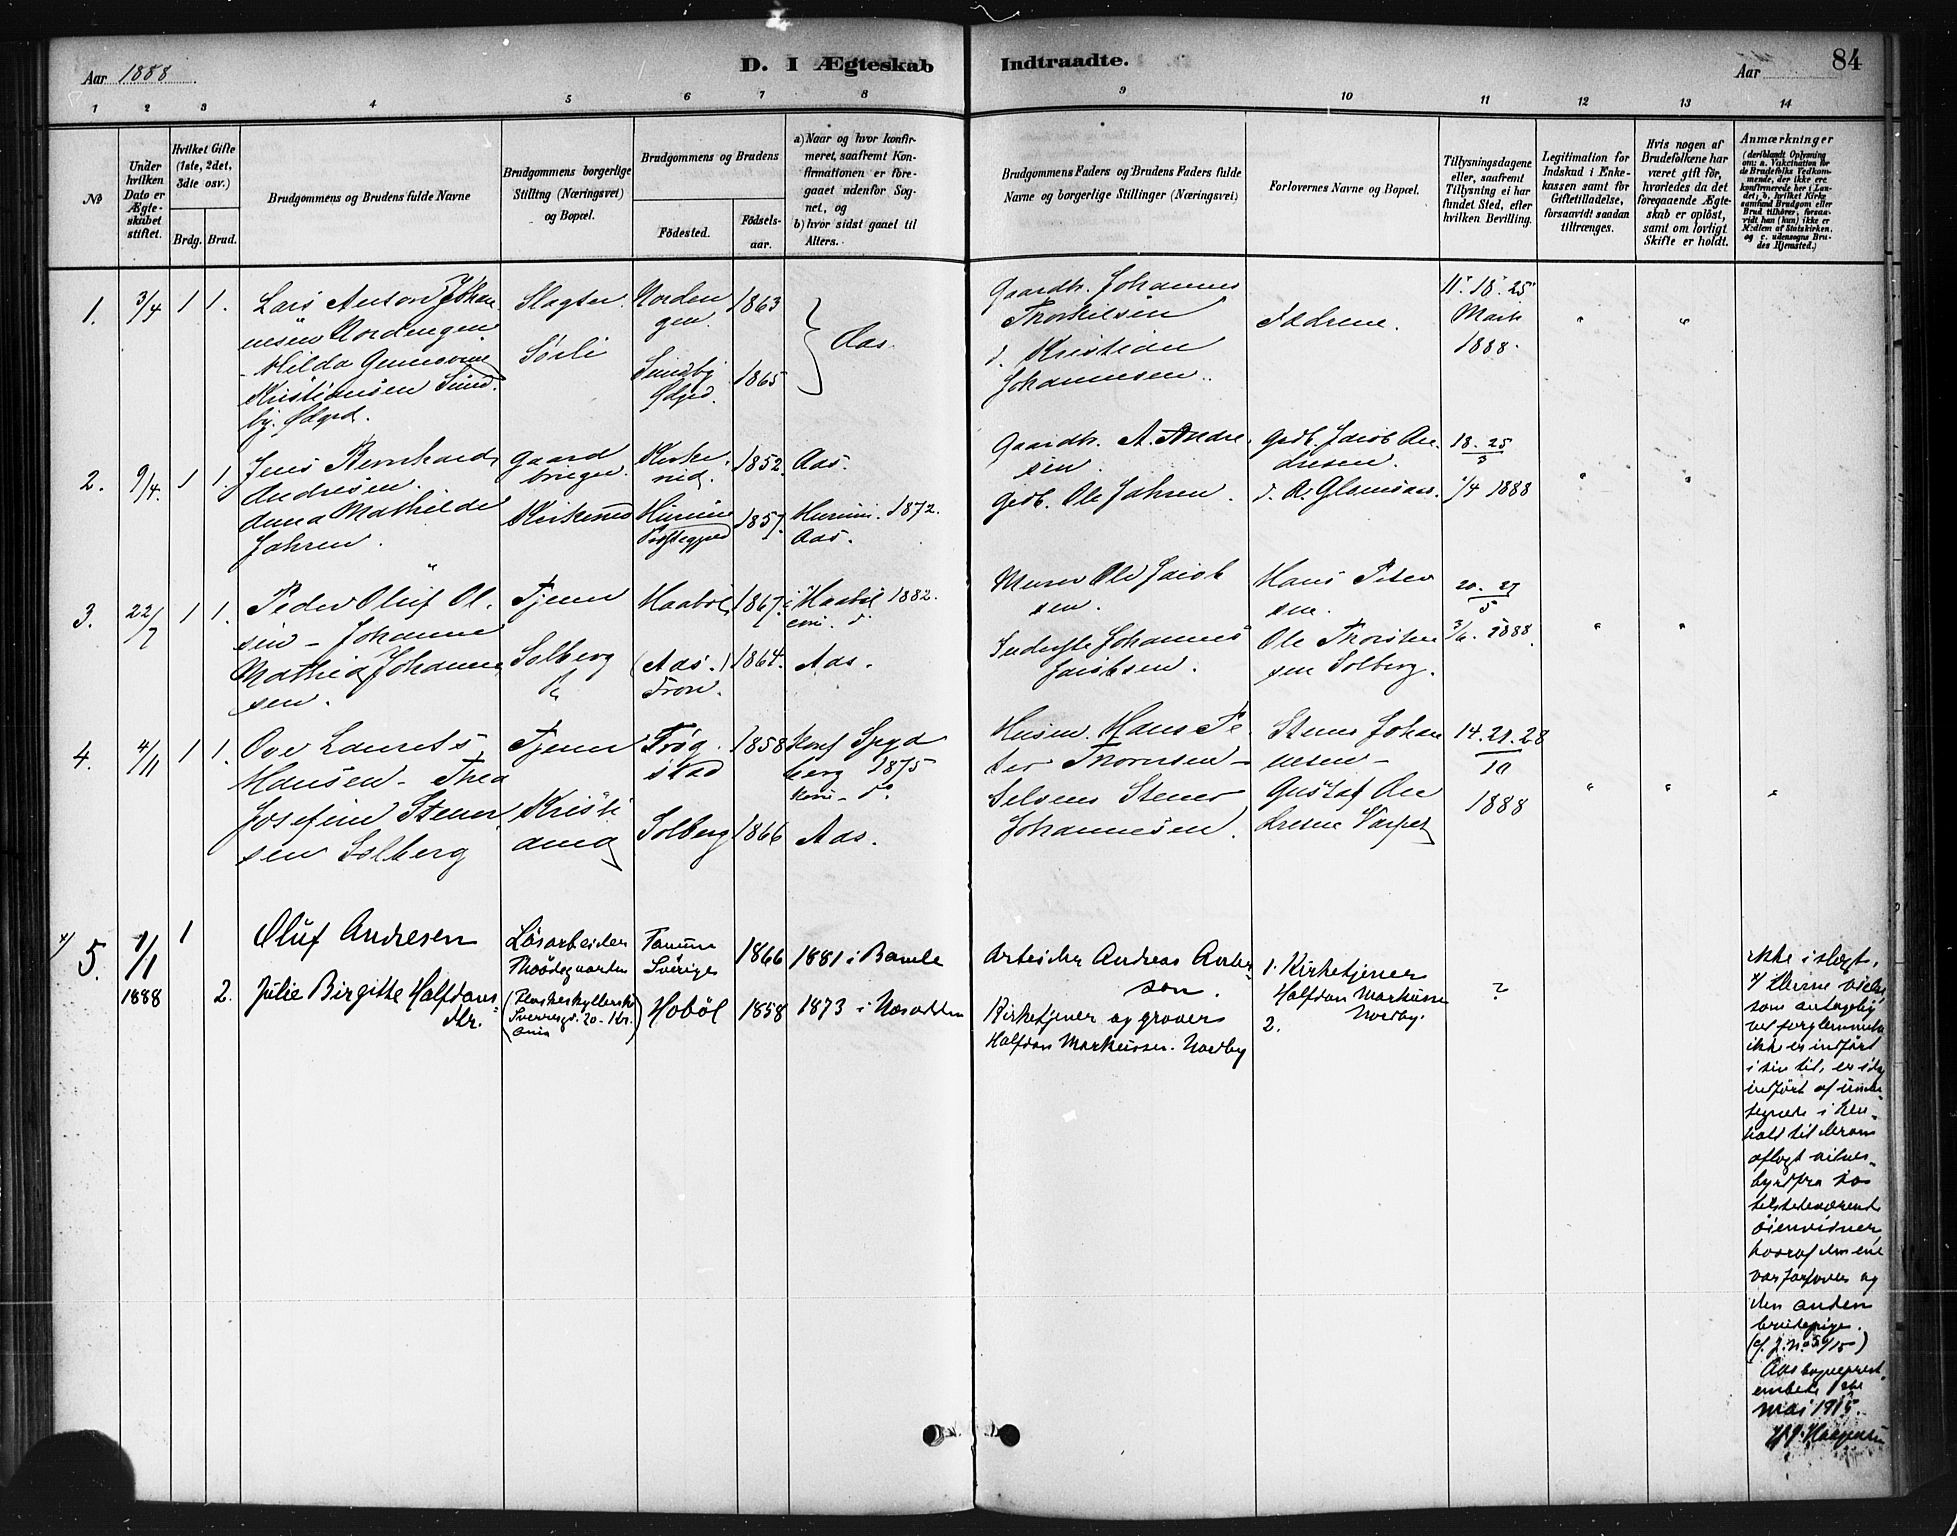 Aar 1888.
D. I Ægteskab Indtraadte.
Aar 84
1 2 3 4 5 6 7 8 9 10 11 12 13 14
No
Under hvilken Dato er Ægteskabet stiftet.
Hvilket Gifte (1ste, 2det, 3dte osv.)
Brdg. Brud.
Brudgommens og Brudens fulde Navne
Brudgommens borgerlige Stilling (Næringsvei) og Bopæl.
Brudgommens og Brudens
Fødested.
Fødsels-aar.
a) Naar og hvor konfir-
meret, saafremt Kon-
firmationen er fore-
gaaet udenfor Sog-
net, og
b) hvor sidst gaaet til
Alters.
Brudgommens Faders og Brudens Faders fulde
Navne og borgerlige Stillinger (Næringsvei)
Forlovernes Navne og Bopæl.
Tillysningsdagene
eller, saafremt
Tillysning ei har
fundet Sted, efter
hvilken Bevilling.
Legitimation for
Indskud i Enke-
kassen samt for
Giftetilladelse,
forsaavidt saadan
tiltrænges.
Hvis nogen af
Brudefolkene har
været gift før,
hvorledes da det
foregaaende Ægte-
skab er opløst,
samt om lovligt
Skifte er holdt.
Anmærkninger
(deriblandt Oplysning
om: a. Vakcination for
de Brudefolks Vedkom-
mende, der ikke ere
konfirmerede her i Lan-
det; b. hvilket Kirke
samfund Brudgom eller
Brud tilhører, forsaa-
vidt han (hun) ikke er
Medlem af Statskirken,
og c. udensogns Bru-
des Hjemsted.)
1. 3/4 1 1.
Lars Anton Johan
nesen Nordengen
- Hilda
Kristiansen Sund
by. Ødgrd.
Slagter.
Sørli
Norden
gen.
Sundby
Ødgrd.
1863
1865
Aas.
Gaardb. Johannes
Thorkilsen
d. Kristian
Johannesen.
Fædrene.
11. 18. 25
Marts
1888.
2. 9/4. 1 1.
Jens Bernhard
Andresen.
Anna Mathilde
Jahren.
Gaard
bruger
Kirkerud
Kirke
rud.
Præstegjeld
1852.
1857.
Aas.
1872.
Aas.
Gaardb. A. Andre
sen.
Grdb. Ole Jahren.
Grdb. Jacob An
dresen.
18. 25
3
1/4 1888
3. 22/7 1 1.
Peder Oluf Ol
sen - Johanne
Mathea Johanne
sen.
Tjener
Solberg
Haabøl
(Aas.)
Fron.
1867.
1864.
Haabøl 1882.
Aas.
Murer Ole Jacob
sen.
Inderste Johannes
Jacobsen.
Hans Peter
sen.
Ole Thorsten
sen Solberg.
20. 27
5
3/6. 1888.
4. 4/11 1 1.
Ove Laurets
Hansen - Thea
Josefine Stener
sen Solberg
Tjener
Kristi
ania
Trøg
stad
Solberg
1858
1866
Konf Spyd
berg 1875
Aas.
Husm. Hans Pe
ter Thoresen -
Selveier Stener
Johannesen.
Stener Johan
nesen -
Gustaf An
dresen
14. 21. 28
10
1888
5. 1/1 1888 1
2.
Oluf Andresen
Julie Birgitte Halfdans-
dtr.
Løsarbeider
Tanum
Sverige
Hobøl
1866
1858
1881 i Bamle
1873 i Nesodden
Arbeider Andreas Ander-
son.
Kirketjener og graver
Halfdan Markussen. Nordby
1. Kirketjener
Halfdan Markussen
Nordby.
2.
?
ikke i slegt.
x/ Denne vielse,
som antagelig
ved forglemmelse
ikke er indført
i sin tid, er idag
indført af under-
tegnede i hen-
hold til derom
aflagt vidnes-
byrd fra to
tilstedeværende
øienvidner,
hvoraf den ene
var forlover og
den anden
brudepige.
Aas sogneprest-
embede 1ste
mai 1915.